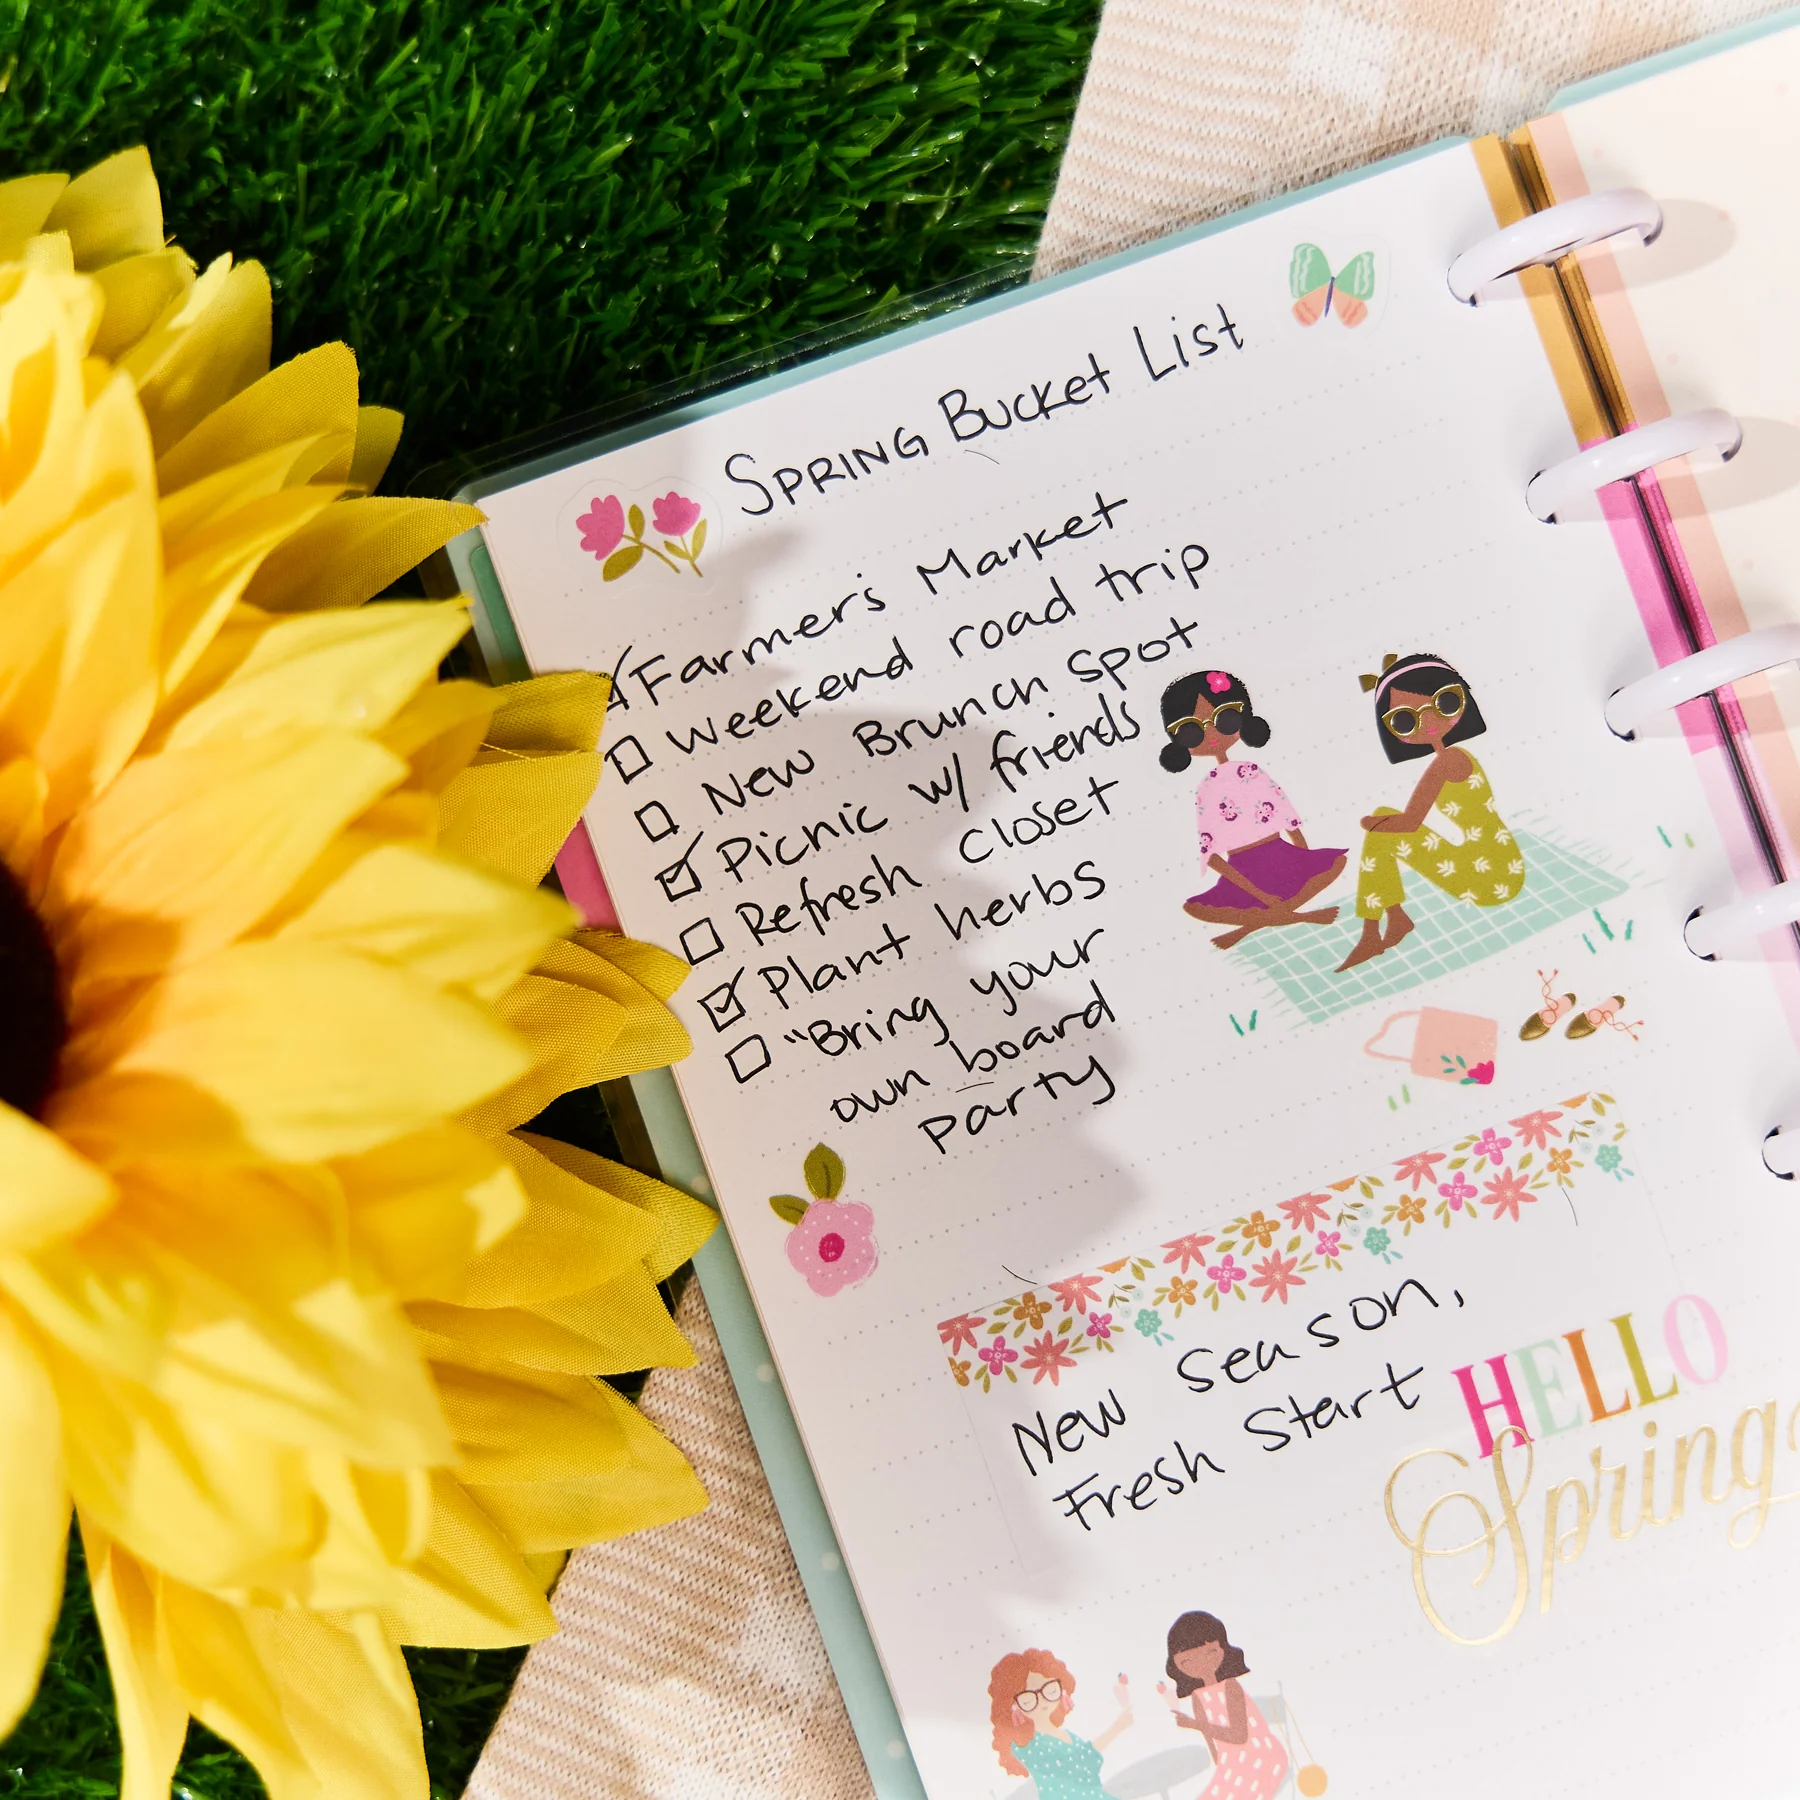 Spring Bucket List
Farmer's Market
Weekend road trip
New Brunch spot
Picnic w/ friends
Refresh closet
Plant herbs
"Bring your
own board
party
New Season,
Fresh Start
HELLO
Spring